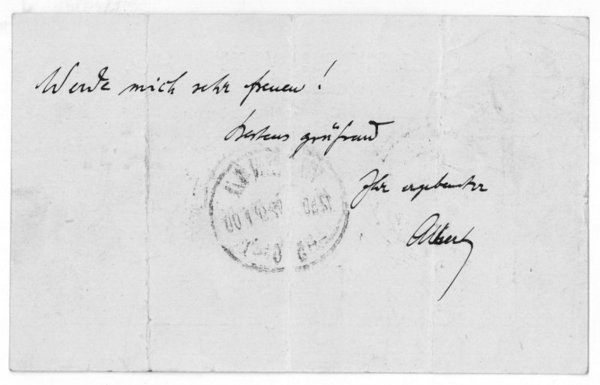 Werde mich sehr freuen!
bestens grüßend
Ihr ergebenster